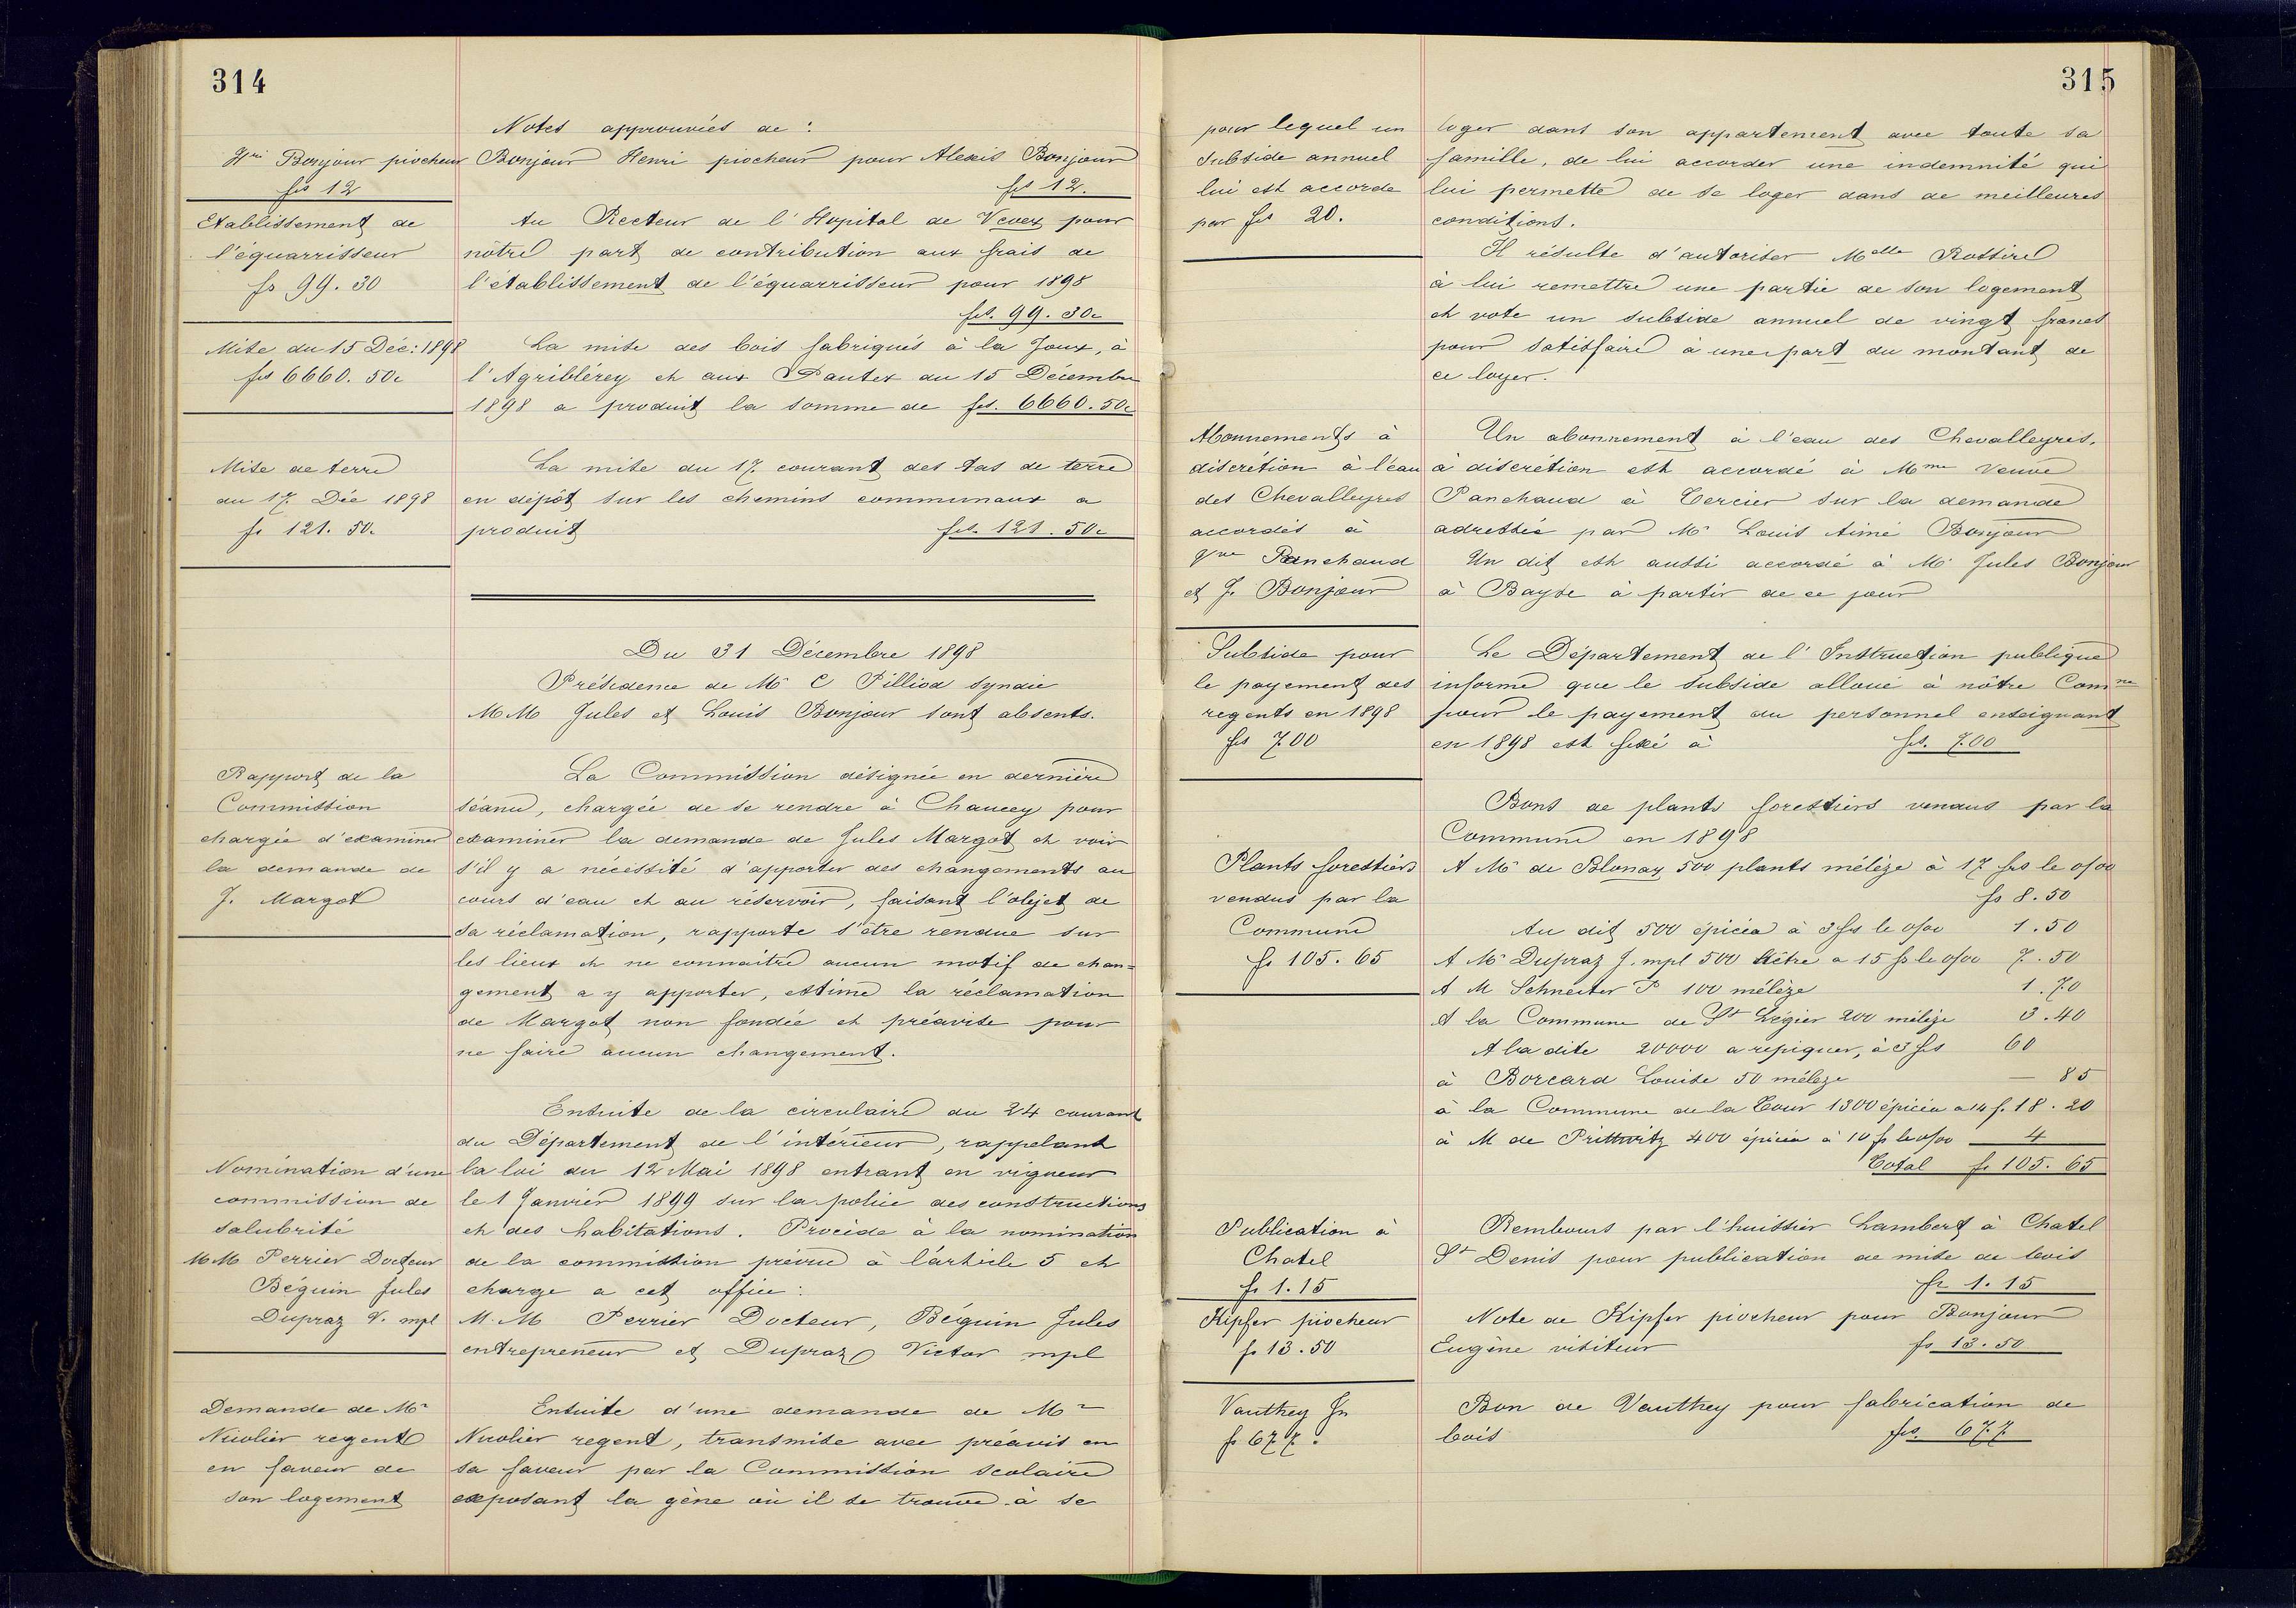 314
Notes approuvées de :
Hri Bonjour piocheur
frs 12
Bonjour Henri piocheur pour Alexis Bonjour
frs 12.
Etablissement de
l'équarrisseur
fr 99.30
Au Recteur de l'Hopital de Vevey pour
nôtre part de contribution aux frais de
l'établissement de l'équarrisseur pour 1898
frs. 99.30c
Mise du 15 Déc: 1898
frs 6660.50c
La mise des bois fabriqués à la Joux, à
l'Agriblérey et aux Pautex du 15 Décembre
1898 a produit la somme de frs. 6660.50c
Mise de terre
du 17 Déc 1898
fr 121.50.
La mise du 17 courant des tas de terre
en dépôt sur les chemins communaux a
produit frs. 121.50c
Du 31 Décembre 1898
Présidence de Mr C Pilliod syndic
MM Jules et Louis Bonjour sont absents.
Rapport de la
Commission
chargée d'examiner
la demande de
J. Margot
La Commission désignée en dernière
séance, chargée de se rendre à Chaucey pour
examiner la demande de Jules Margot et voir
s'il y a nécessité d'apporter des changements au
cours d'eau et au réservoir, faisant l'objet de
sa réclamation, rapporte s'être rendue sur
les lieux et ne connaitre aucun motif de chan=
gement a y apporter, estime la réclamation
de Margot non fondée et préavise pour
ne faire aucun changement.
Nomination d'une
commission de
salubrité
MM Perrier Docteur
Béguin Jules
Dupraz V. mpl
Ensuite de la circulaire du 24 courant
du Département de l'intérieur, rappelant
la loi du 12 Mai 1898 entrant en vigueur
le 1 Janvier 1899 sur la police des constructions
et des habitations. Procède à la nomination
de la commission prévue à l'article 5 et
charge a cet office :
M.M Perrier Docteur, Béguin Jules
entrepreneur et Dupraz Victor mpl
Demande de Mr
Nicolier regent
en faveur de
son logement
Ensuite d'une demande de Mr
Nicolier regent, transmise avec préavis en
sa faveur par la Commission scolaire
exposant la gène où il se trouve à se
315
pour lequel un
subside annuel
lui est accorde
par frs 20.
loger dans son appartement avec toute sa
famille, de lui accorder une indemnité qui
lui permette de se loger dans de meilleures
conditions.
Il résulte d'autoriser Melle Rossire
à lui remettre une partie de son logement
et vote un subside annuel de vingt francs
pour satisfaire à une part du montant de
ce loyer.
Abonnements à
discrétion à l'eau
des Chevalleyres
accordés à
Vve Panchaud
et J. Bonjour
Un abonnement à l'eau des Chevalleyres.
à discrétion est accordé à Mme Veuve
Panchaud à Tercier sur la demande
adressée par Mr Louis Aimé Bonjour
Un dit est aussi accordé à Mr Jules Bonjour
à Bayse à partir de ce jour
Subside pour
le payement des
regents en 1898
frs 700
Le Département de l'Instruction publique
informe que le subside alloué à nôtre Comne
pour le payement du personnel enseignant
en 1898 est fixé à frs. 700
Plants forestiers
vendus par la
Commune
fr 105.65
Bons de plants forestiers vendus par la
Commune en 1898
A Mr de Blonay 500 plants mélèze à 17 frs le o/oo
fr 8.50
Au dit 500 épicéa à 3 frs le o/oo 1.50
A Mr Dupraz J. mpl 500 hêtre a 15 fr le o/oo 7.50
A M Schneiter P 100 mélèze 1.70
A la Commune de St Légier 200 mélèze 3.40
A la dite 20000 a repiquer, à 3 frs 60
à Borcard Louise 50 mélèze — 85
à la Commune de la Tour 1300 épicéa a 14 f. 18.20
à M de Prittwitz 400 épicéa à 10 fr le o/oo 4
Total fr 105.65
Publication à
Chatel
fr 1.15
Rembours par l'huissier Lambert à Chatel
St Denis pour publication de mise de bois
fr 1.15
Kipfer piocheur
fr 13.50
Note de Kipfer piocheur pour Bonjour
Eugène visiteur fr 13.50
Vauthey Fn
fr 677.
Bon de Vauthey pour fabrication de
bois frs. 677